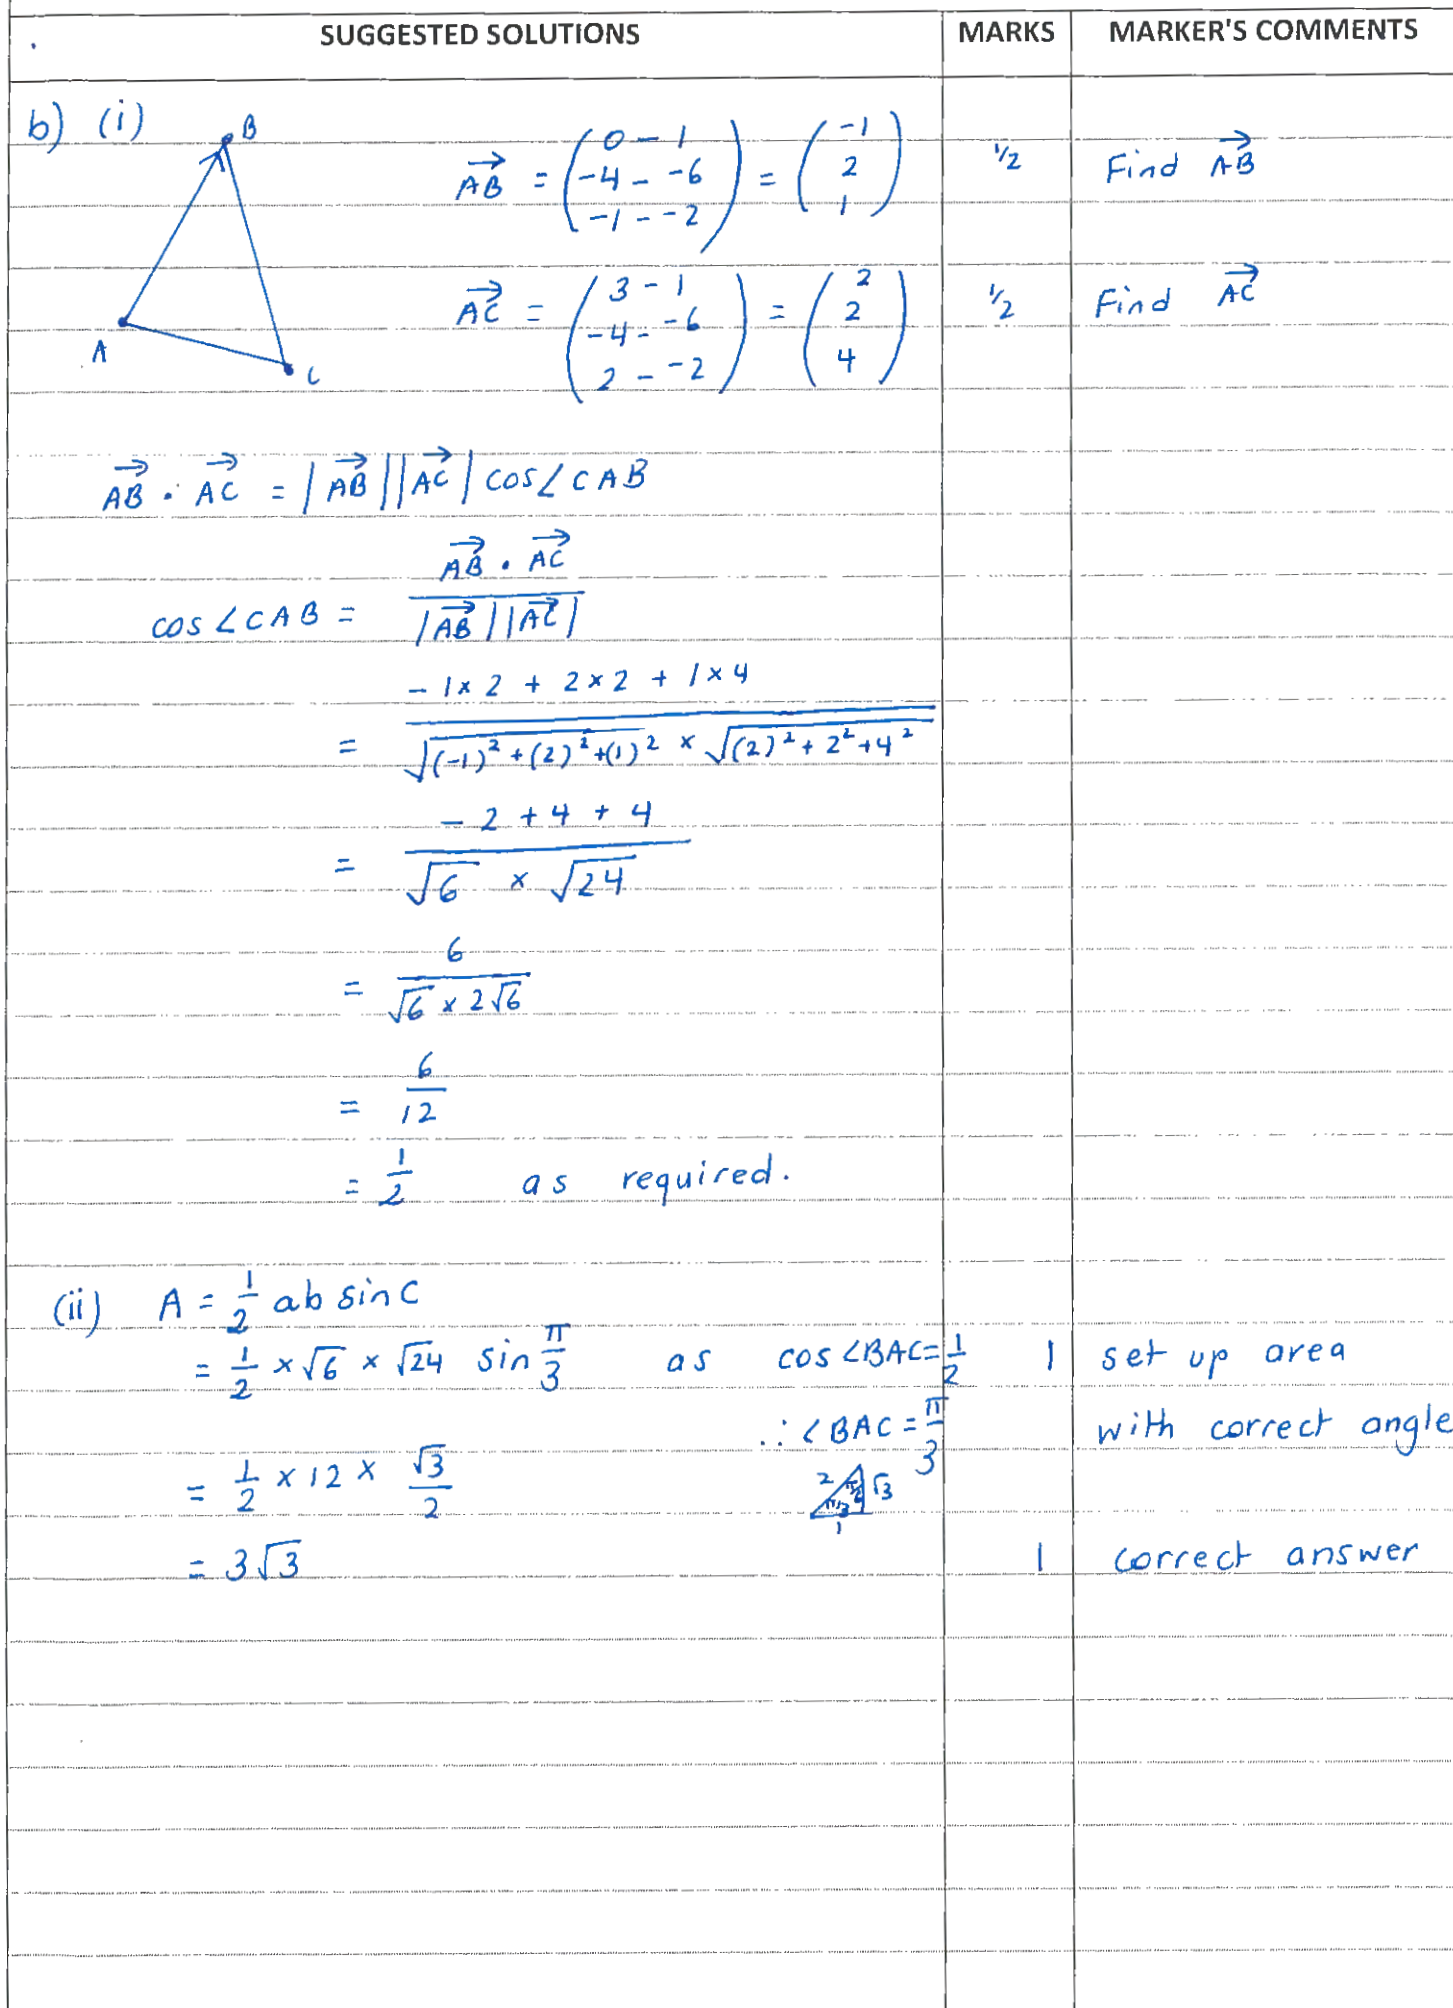 SUGGESTED SOLUTIONS MARKS MARKER'S COMMENTS
b) (i)
B
A
C
$\overrightarrow{AB} = \begin{pmatrix} 0 - 1 \\ -4 - -6 \\ -1 - -2 \end{pmatrix} = \begin{pmatrix} -1 \\ 2 \\ 1 \end{pmatrix}$ 1/2 Find $\overrightarrow{AB}$
$\overrightarrow{AC} = \begin{pmatrix} 3 - 1 \\ -4 - -6 \\ 2 - -2 \end{pmatrix} = \begin{pmatrix} 2 \\ 2 \\ 4 \end{pmatrix}$ 1/2 Find $\overrightarrow{AC}$
$\overrightarrow{AB} \cdot \overrightarrow{AC} = |\overrightarrow{AB}||\overrightarrow{AC}| \cos \angle CAB$
$\cos \angle CAB = \frac{\overrightarrow{AB} \cdot \overrightarrow{AC}}{|\overrightarrow{AB}||\overrightarrow{AC}|}$
$= \frac{-1 \times 2 + 2 \times 2 + 1 \times 4}{\sqrt{(-1)^2 + (2)^2 + (1)^2} \times \sqrt{(2)^2 + 2^2 + 4^2}}$
$= \frac{-2 + 4 + 4}{\sqrt{6} \times \sqrt{24}}$
$= \frac{6}{\sqrt{6} \times 2\sqrt{6}}$
$= \frac{6}{12}$
$= \frac{1}{2}$ as required.
(ii) $A = \frac{1}{2} ab \sin C$
$= \frac{1}{2} \times \sqrt{6} \times \sqrt{24} \sin \frac{\pi}{3}$ as $\cos \angle BAC = \frac{1}{2}$ 1 set up area
$\therefore \angle BAC = \frac{\pi}{3}$ with correct angle
$= \frac{1}{2} \times 12 \times \frac{\sqrt{3}}{2}$
2 $\frac{\pi}{6}$ $\sqrt{3}$
$\frac{\pi}{3}$
1
$= 3\sqrt{3}$ 1 correct answer